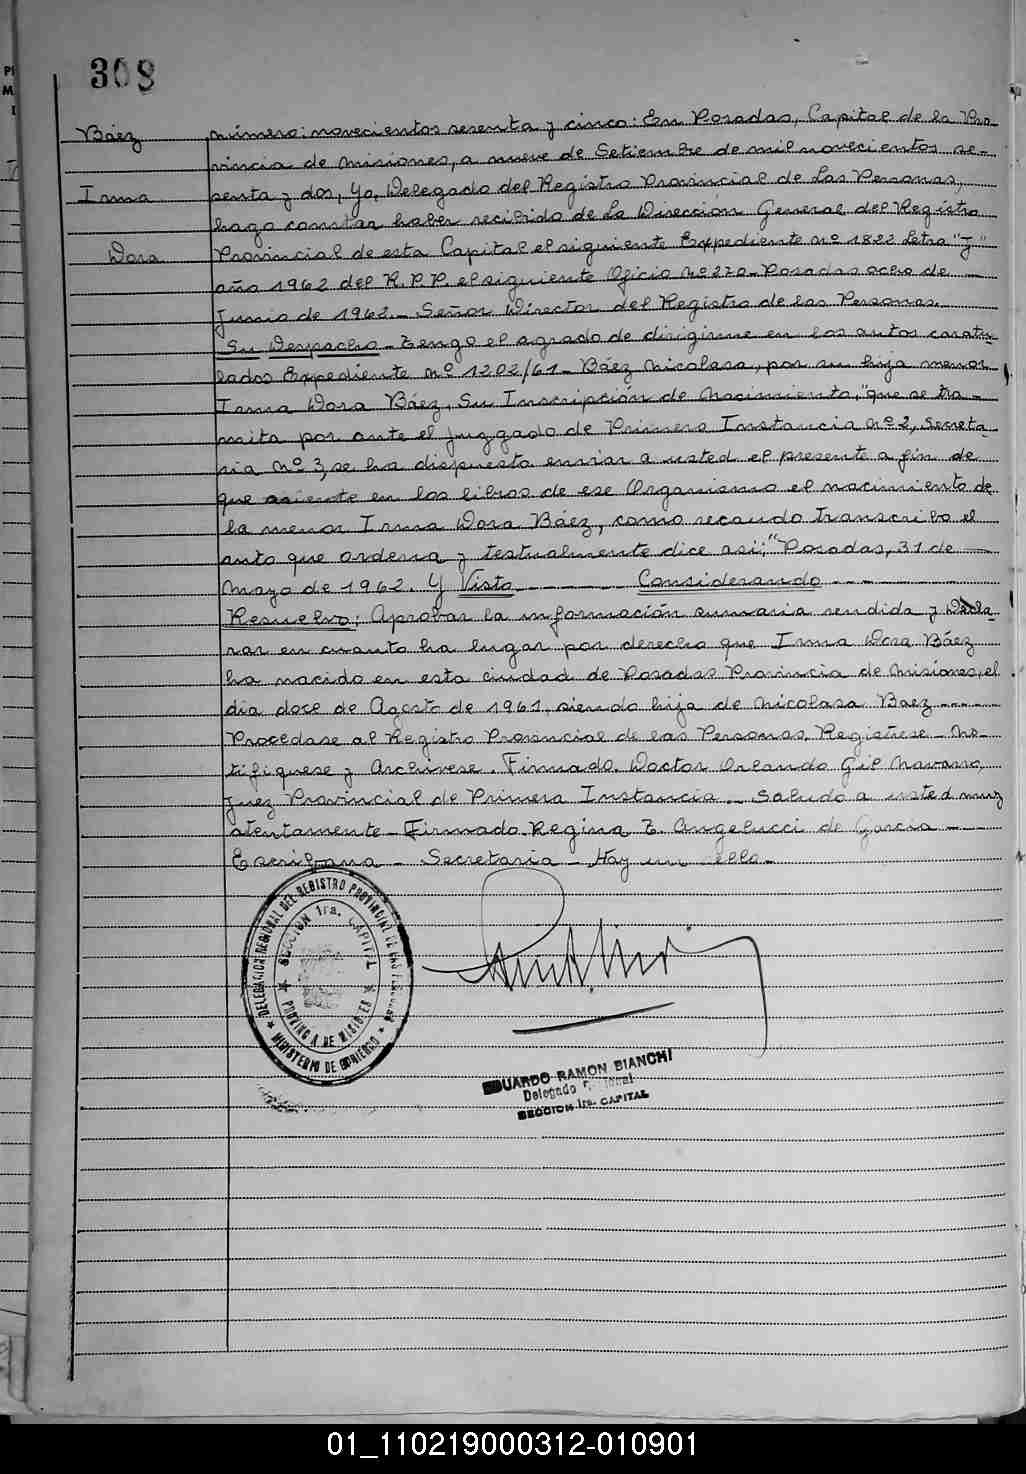 308
Báez
Irma
Dora
número: novecientos sesenta y cinco: En Posadas, Capital de la Pro-
vincia de Misiones, a nueve de Setiembre de mil novecientos se-
senta y dos, Yo, Delegado del Registro Provincial de Las Personas,
hago constar haber recibido de La Dirección General del Registro
Provincial de esta Capital el siguiente Expediente nº 1822 Letra "J"
año 1962 del R.P.P. el siguiente Oficio Nº 270- Posadas ocho de
Junio de 1962.- Señor Director del Registro de las Personas.
Su Despacho - Tengo el agrado de dirigirme en los autos caratu-
lados Expediente nº 1202/61- Báez Nicolasa, por su hija menor
Irma Dora Báez, Su Inscripción de Nacimiento," que se tra-
mita por ante el Juzgado de Primera Instancia nº 2, Secreta-
ria nº 3, se ha dispuesto enviar a usted el presente a fin de
que asiente en los libros de ese Organismo el nacimiento de
la menor Irma Dora Báez, como recaudo transcribo el
auto que ordena y testualmente dice asi; "Posadas, 31 de
Mayo de 1962. Y Visto ------ Considerando ------
Resuelvo: Aprobar la información sumaria rendida y Decla-
rar en cuanto ha lugar por derecho que Irma Dora Báez
ha nacido en esta ciudad de Posadas Provincia de Misiones, el
dia doce de Agosto de 1961, siendo hija de Nicolasa Baez -----
Procedase al Registro Provincial de las Personas. Registrese - No-
tifiquese y Archivese. Firmado. Doctor Orlando Gil Navarro,
Juez Provincial de Primera Instancia.- Saludo a usted muy
atentamente - Firmado. Regina T. Angelucci de Garcia -
Escribana - Secretaria - Hay un sello -
DELEGACION REGIONAL DEL REGISTRO PROVINCIAL DE LAS PERSONAS
SECCION 1ra. CAPITAL
PROVINCIA DE MISIONES
MINISTERIO DE GOBIERNO
EDUARDO RAMON BIANCHI
Delegado
SECCION 1ra. CAPITAL
01_110219000312-010901